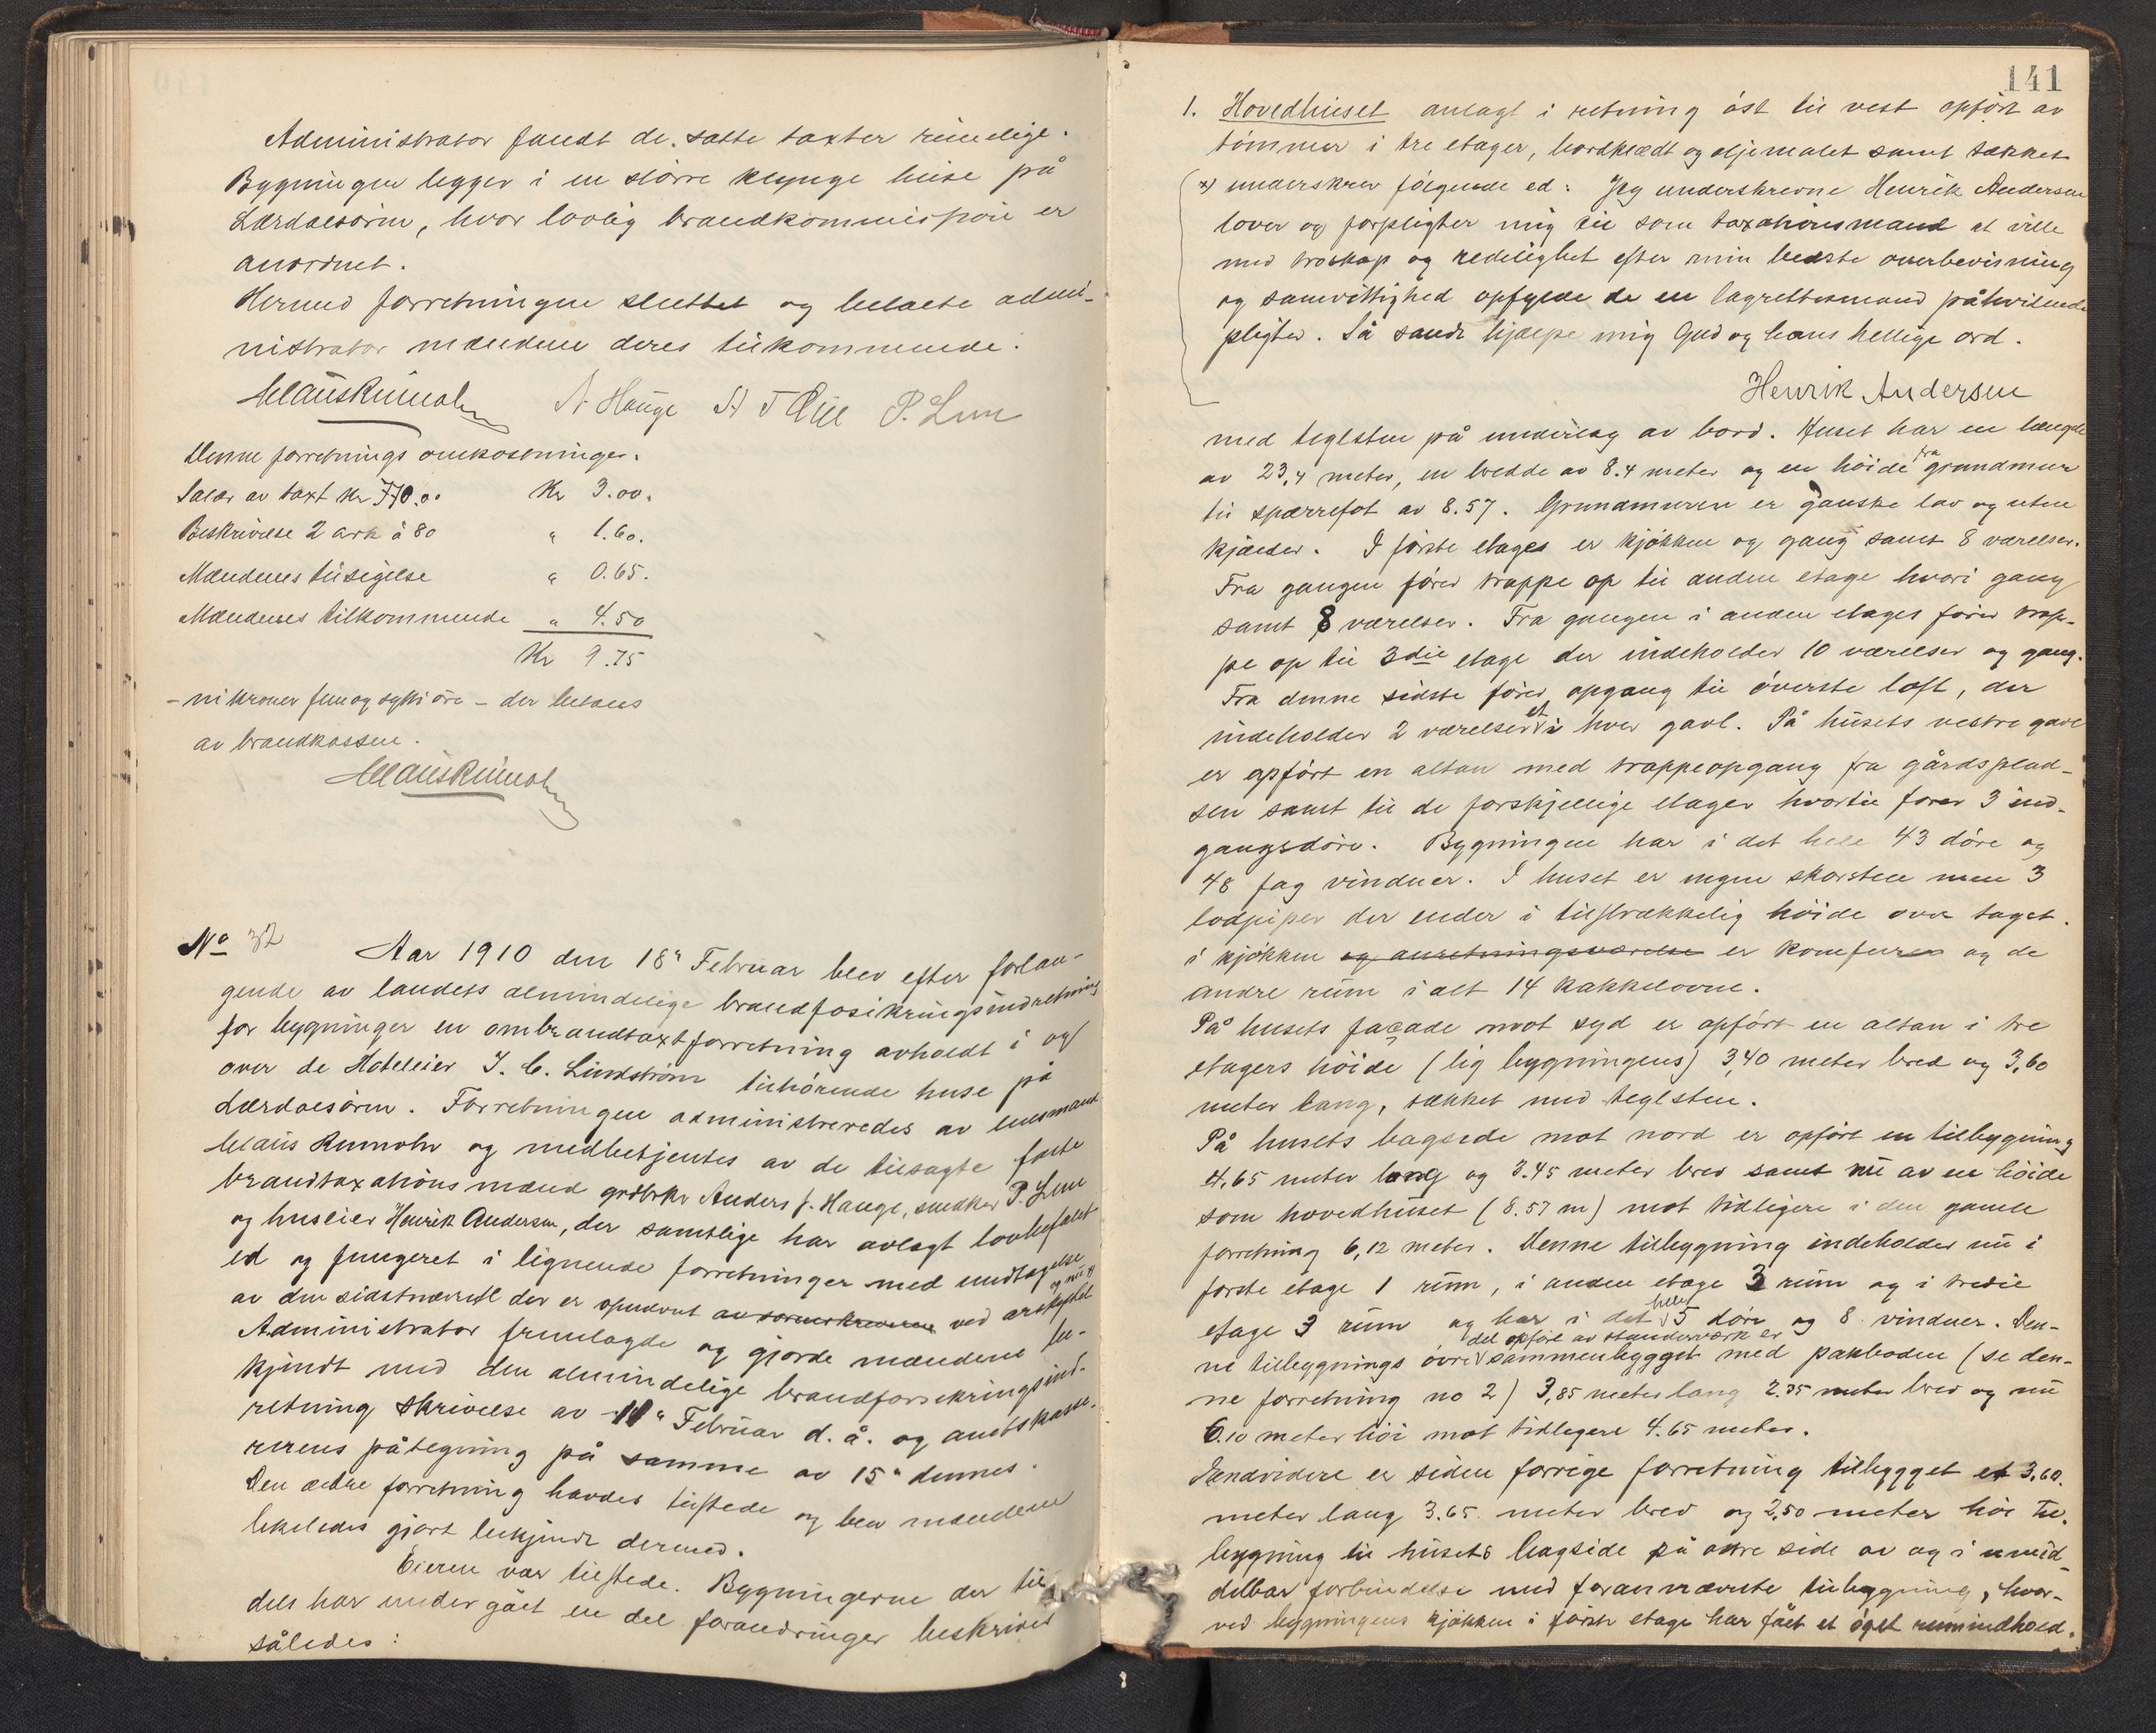 Administrator fandt de satte taxter rimelige.
Bygningen ligger i en større klynge huse på
Lærdalsøren, hvor lovlig brandkommission er
anordnet.
Hermed forretningen sluttet og betalte admi-
nistrator mændene deres tilkommende.
Claus Rumohr A Hauge P. Lem
Denne forretnings omkostninger.
Salær av taxt kr Kr 3.00.
Beskrivelse 2 ark à 80 " 1.60.
Mændenes tilsigelse " 0.65.
Mændenes tilkommende " 4.50
Kr 9.75
- ni kroner fem og sytti øre - der betales
av brandkassen.
Claus Rumohr
No 32 Aar 1910 den 18" Februar blev efter forlan-
gende av landets almindelige brandfosikringsindretning
for bygninger en ombrandtaxtforretning avholdt i og
over de Hoteleier I. C. Lindstrøm tilhørende huse på
Lærdalsøren. Forretningen administreredes av lensmand
Claus Rumohr og medbetjentes av de tilsagte faste
brandtaxationsmænd grdbrkr Anders J. Hauge, snedker P. Lem
og huseier Henrik Andersen, der samtlige har avlagt lovbefalet
ed og fungeret i lignende forretninger med undtagelse
av den sidstnævnte der er opnævnt av sorenskriveren ved og nu x)
Administrator fremlagde og gjorde mændene be-
kjendt med den almindelige brandforsikringsind-
retning skrivelse av 11" Februar d. å. og amtskasse-
rerens påtegning på samme av 15" dennes.
Den ældre forretning havdes tilstede og blev mændene
likeledes gjort bekjendt dermed.
Eieren var tilstede. Bygningerne der til
dels har undergået en del forandringer beskrives
således:
141
1. Hovedhuset anlagt i retning øst til vest opført av
tømmer i tre etager, bordklædt og oljemalet samt tækket
x) underskrev følgende ed: Jeg underskrevne Henrik Andersen
lover og forpligter mig til som taxationsmand at ville
med troskap og redelighet efter min bedste overbevisning
og samvittighed opfylde de en lagrettesmand påhvilende
pligter. Så sandt hjælpe mig Gud og hans hellige ord.
Henrik Andersen
med teglsten på underlag av bord. Huset har en længde
av 23,4 meter, en bredde av 8.4 meter og en høide fra grundmur
til sparrefot av 8.57. Grundmuren er ganske lav og uten
kjælder. I første etages er kjøkken og gang samt 8 værelser.
Fra gangen fører trappe op til anden etage hvori gang
samt 8 værelser. Fra gangen i anden etages fører trap-
pe op til 3die etage der indeholder 10 værelser og gang.
Fra denne sidste fører opgang til øverste loft, der
indeholder 2 værelser et i hver gavl. På husets vestre gavl
er opført en altan med trappeopgang fra gårdsplad-
sen samt til de forskjellige etager hvortil fører 3 ind-
gangsdøre. Bygningen har i det hele 43 døre og
48 fag vinduer. I huset er ingen skorsten men 3
lodpiper der ender i tilstrækkelig høide over taget.
i kjøkken og anretningsværelse er komfurer og de
andre rum i alt 14 kakkelovne.
På husets façade mot syd er opført en altan i tre
etagers høide (lig bygningens) 3,40 meter bred og 3,60
meter lang, tækket med teglsten.
På husets bagside mot nord er opført en tilbygning
4,65 meter lang og 3.45 meter bred samt nu av en høide
som hovedhuset (8.57 m) mot tidligere i den gamle
forretning 6,12 meter. Denne tilbygning indeholder nu i
første etage 1 rum, i anden etage 3 rum og i tredie
etage 3 rum og har i det hele 5 døre og 8 vinduer. Den-
ne tilbygnings øvre del opført av stenderværk er sammenbygget med pakboden (se den-
ne forretning no 2) 3,85 meter lang 2,35 meter bred og nu
6.10 meter høi mot tidligere 4.65 meter.
Endvidere er siden forrige forretning tilbygget et 3,60
meter lang 3.65 meter bred og 2,50 meter høi til-
bygning til husets bagside på øvre side av og i umid-
delbar forbindelse med forannævnte tilbygning, hvor-
ved bygningens kjøkken i første etage har fået et øget rumindhold.